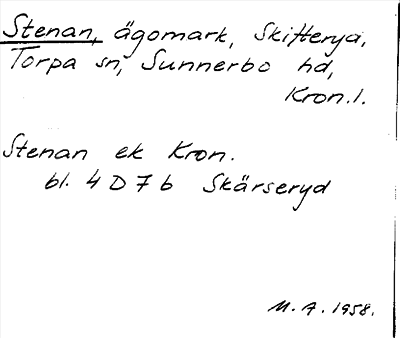 Stenan, ägomark, Skifterya,
Torpa sn, Sunnerbo hd,
Kron. l.
Stenan ek Kron.
bl. 4 D 7 b Skärseryd
M. A. 1958.